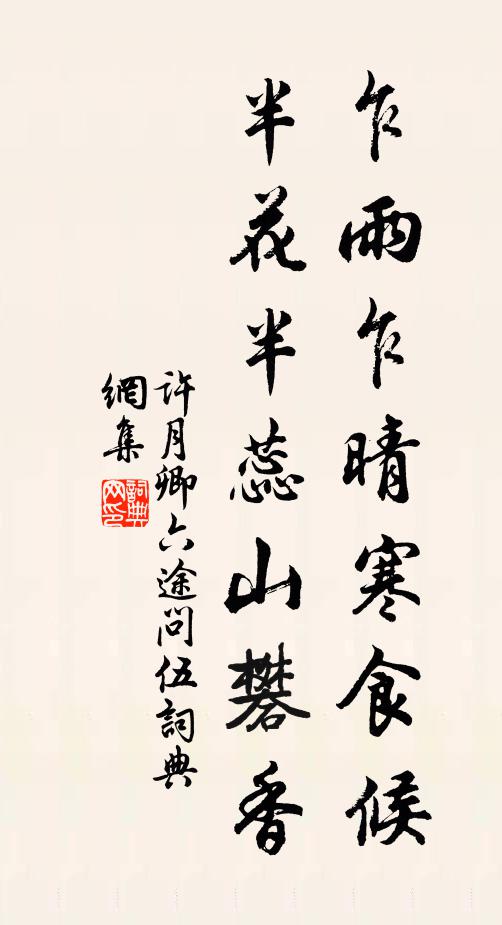 乍雨乍晴寒食候
半花半蕊山礬香
許月卿六途問伍詞典
網集
詞典網印